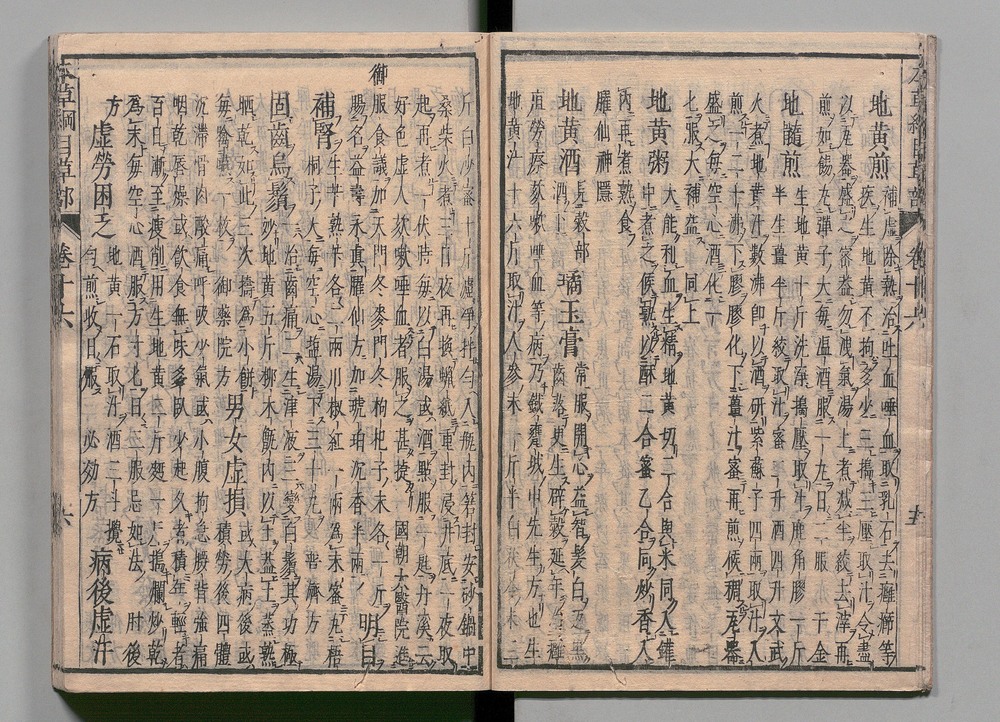 本草綱目草部 卷十六
地黄煎 補虛除熱治吐血唾血取乳石去癰癤等
疾生地黄不拘多少三搗三壓取汁令盡
以瓦器盛之密蓋勿洩氣湯上煮減半絞去滓再
煎如餳丸彈子大每溫酒服一丸日二服 千金
地髓煎 生地黄十斤洗淨搗壓取汁鹿角膠一斤
半生薑半斤絞取汁蜜二升酒四升文武
火煮地黄汁數沸即以酒研紫蘇子四兩取汁入
煎一二十沸下膠膠化下薑汁蜜再煎候稠承器
盛之每空心酒化一
匕服大補益 同上
地黄粥 大能利血生精地黄切二合與米同入罐
中煮之候熟以酥二合蜜乙合同炒香入
內再煮熟食
臞仙神隱
地黄酒 見穀部酒下 瓊玉膏 常服開心益智髮白返黑齒落更生辟穀延年治癰
疽勞瘵欬嗽唾血等病乃鐵甕城中先生方也生
地黄汁十六斤取汁人參末一斤半白茯苓末三
斤白沙蜜十斤濾淨拌勻入瓶內箬封安砂鍋中
桑柴火煮三日夜再換蠟紙重封浸井底一夜取
起再煮一伏時每以白湯或酒點服一匙丹溪云
好色虛人欬嗽唾血者服之甚捷 國朝太醫院進
御服食議加天門冬麥門冬枸杞子末各一斤
賜名益壽永真臞仙方加琥珀沉香半兩 明目
補腎 生苄熟苄各二兩川椒紅一兩為末蜜丸梧
桐子大每空心鹽湯下三十丸 普濟方
固齒烏鬚 一治齒痛二生津液三變白鬚其功極
妙地黄五斤柳木甑內以土蓋上蒸熟
晒乾如此三次搗為小餅
每噙嚥一枚 御藥院方 男女虛損 或大病後或積勞後四體
沉滯骨肉酸痛呼吸少氣或小腹拘急腰背強痛
咽乾唇燥或飲食無味多臥少起久者積年輕者
百日漸至瘦削用生地黄二斤麪一斤搗爛炒乾
為末每空心酒服方寸匕日三服忌如法 肘後
方 虛勞困乏 地黄一石取汁酒三斗攪勻煎收日服 必効方 病後虛汗
本草綱目草部 卷十六